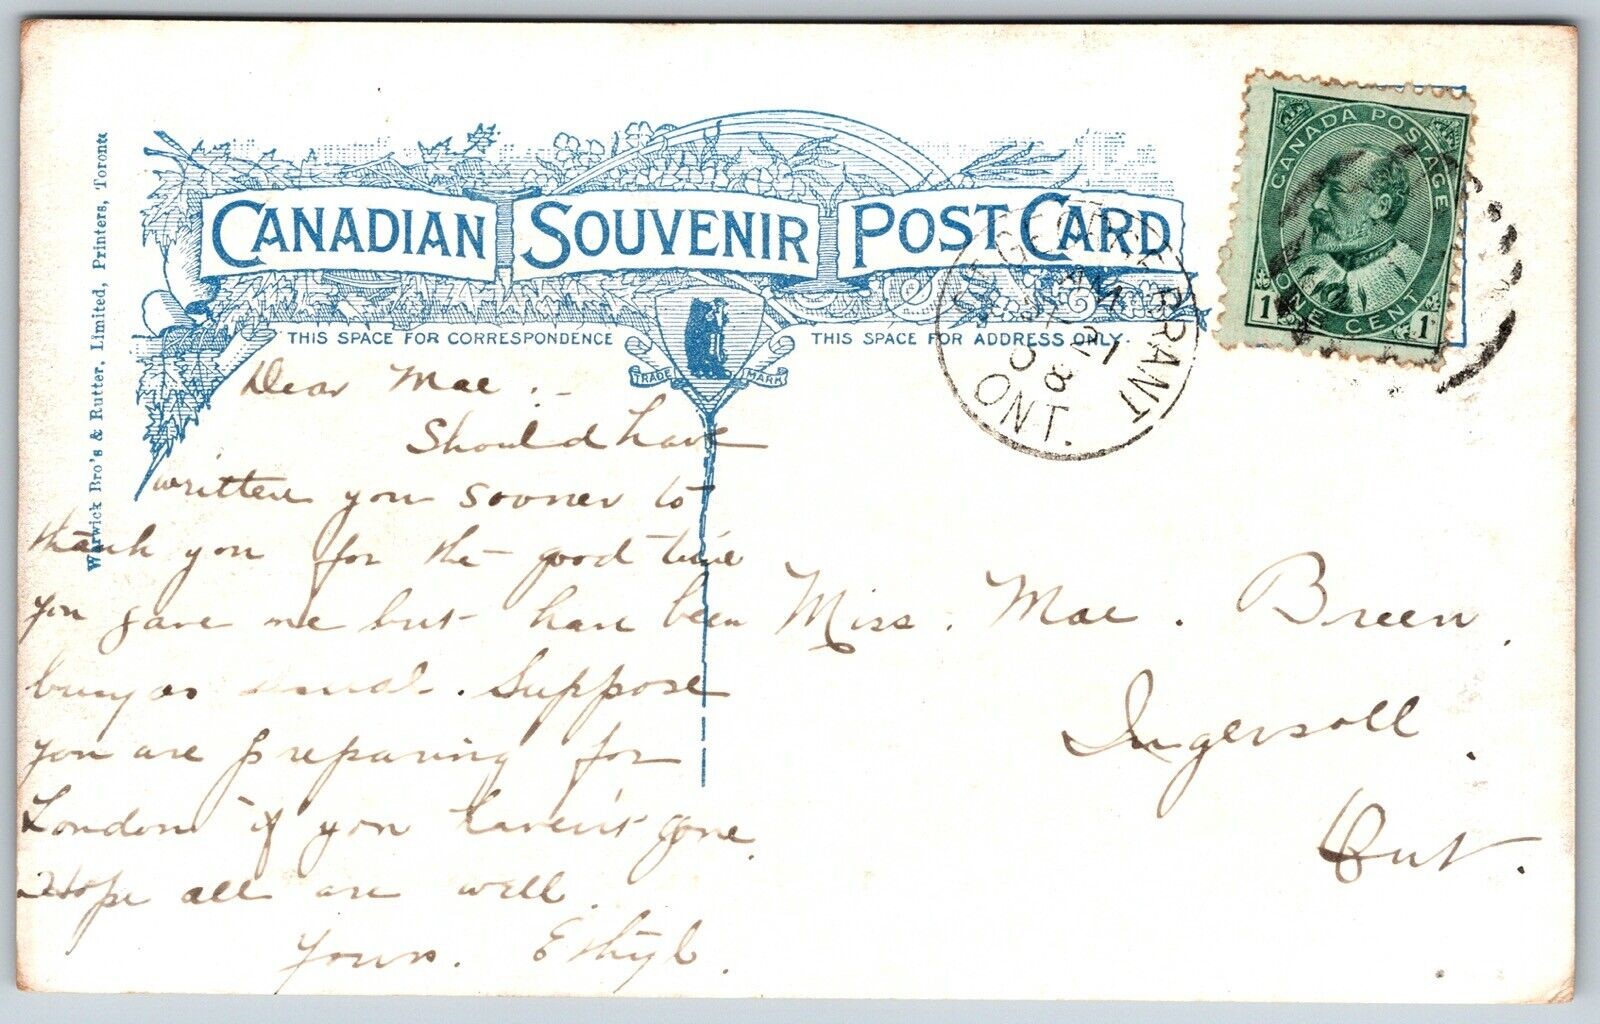 CANADIAN SOUVENIR POST CARD
THIS SPACE FOR CORRESPONDENCE
THIS SPACE FOR ADDRESS ONLY.
TRADE MARK
Warwick Bro's & Rutter, Limited, Printers, Toronto
CANADA POSTAGE
1 ONE CENT 1
ST GEORGE BRANT
AM
ONT.
Dear Mae :-
Should have
written you sooner to
thank you for the good time
you gave me but have been
busy as usual. Suppose
you are preparing for
London if you haven't gone.
Hope all are well.
Yours. Ethyl.
Miss. Mae. Breen.
Ingersoll.
Ont.